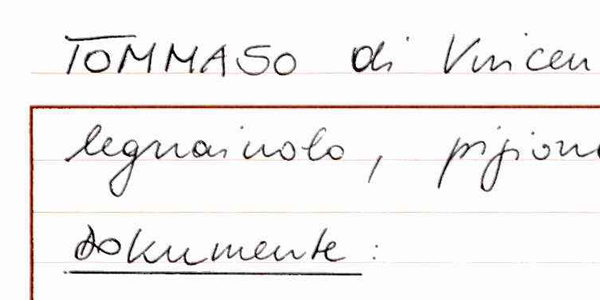 TOMMASO di Vincen
legnaiuolo, pigion
Dokumente: